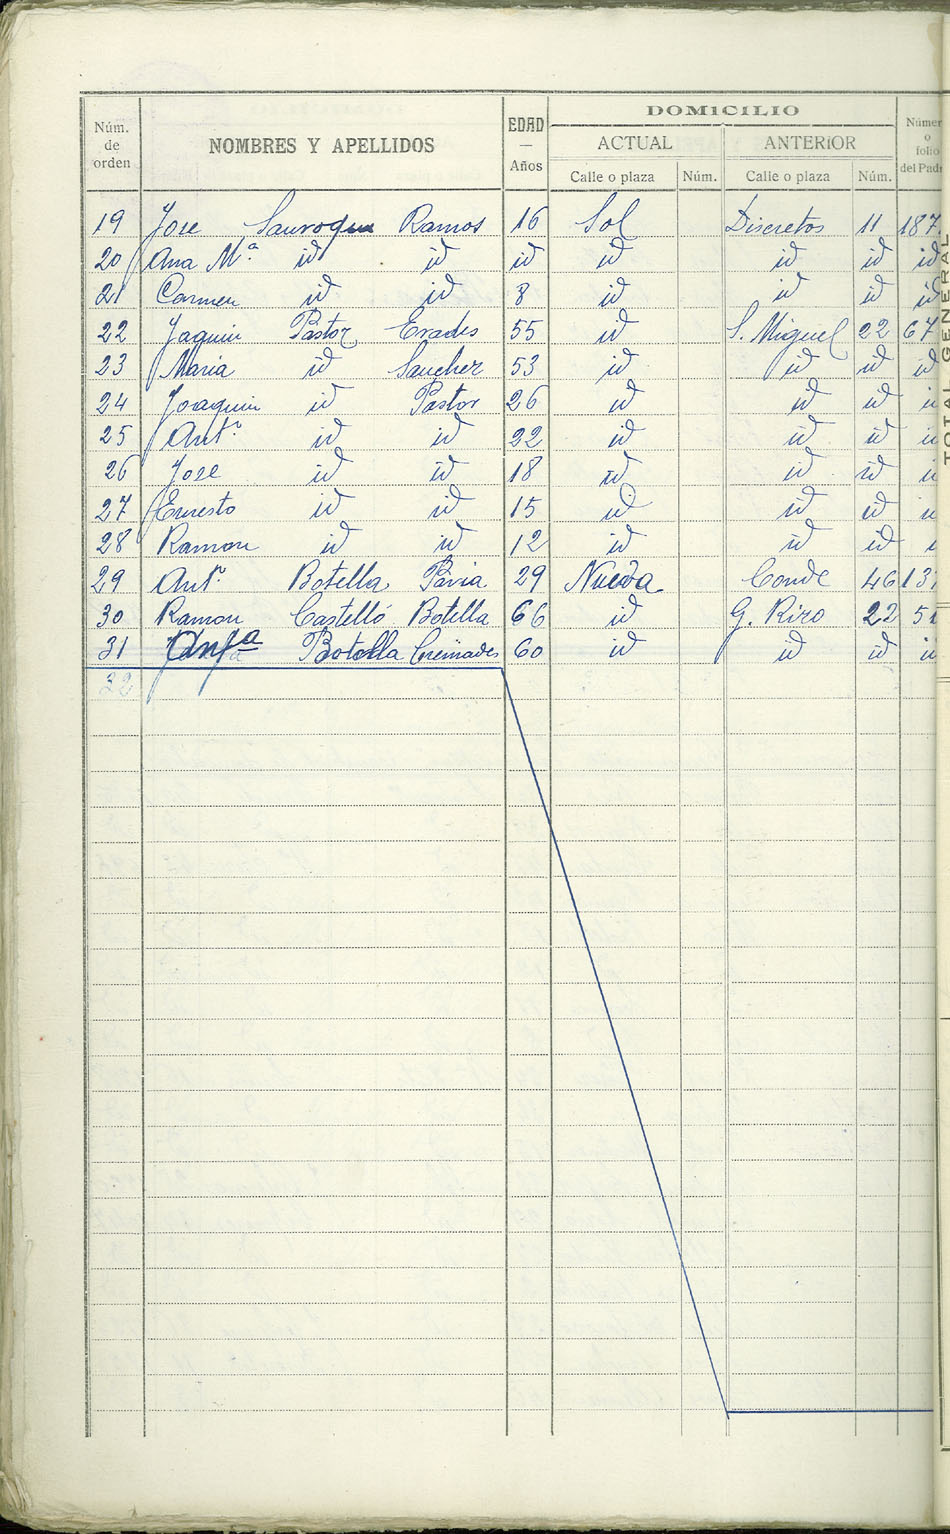 DOMICILIO
Núm. de orden NOMBRES Y APELLIDOS EDAD — Años ACTUAL ANTERIOR Númer o folio del Pad
Calle o plaza Núm. Calle o plaza Núm.
19 Jose Ramos 16 Sol Discretos 11 187
20 Ana Mª id id id id id id id
21 Carmen id id 8 id id id id
22 Jaquin Pastor Erades 55 id S. Miguel 22 67
23 Maria id Sanchez 53 id id id id
24 Joaquin id Pastor 26 id id id i
25 Antº id id 22 id id id i
26 Jose id id 18 id id id i
27 Ernesto id id 15 id id id i
28 Ramon id id 12 id id id i
29 Antº Botella Pavia 29 Nueva Conde 46 13
30 Ramon Castelló Botella 66 id G. Riro 22 5
31 Antª Botella Cremades 60 id id id i
32
TOTAL GENERAL